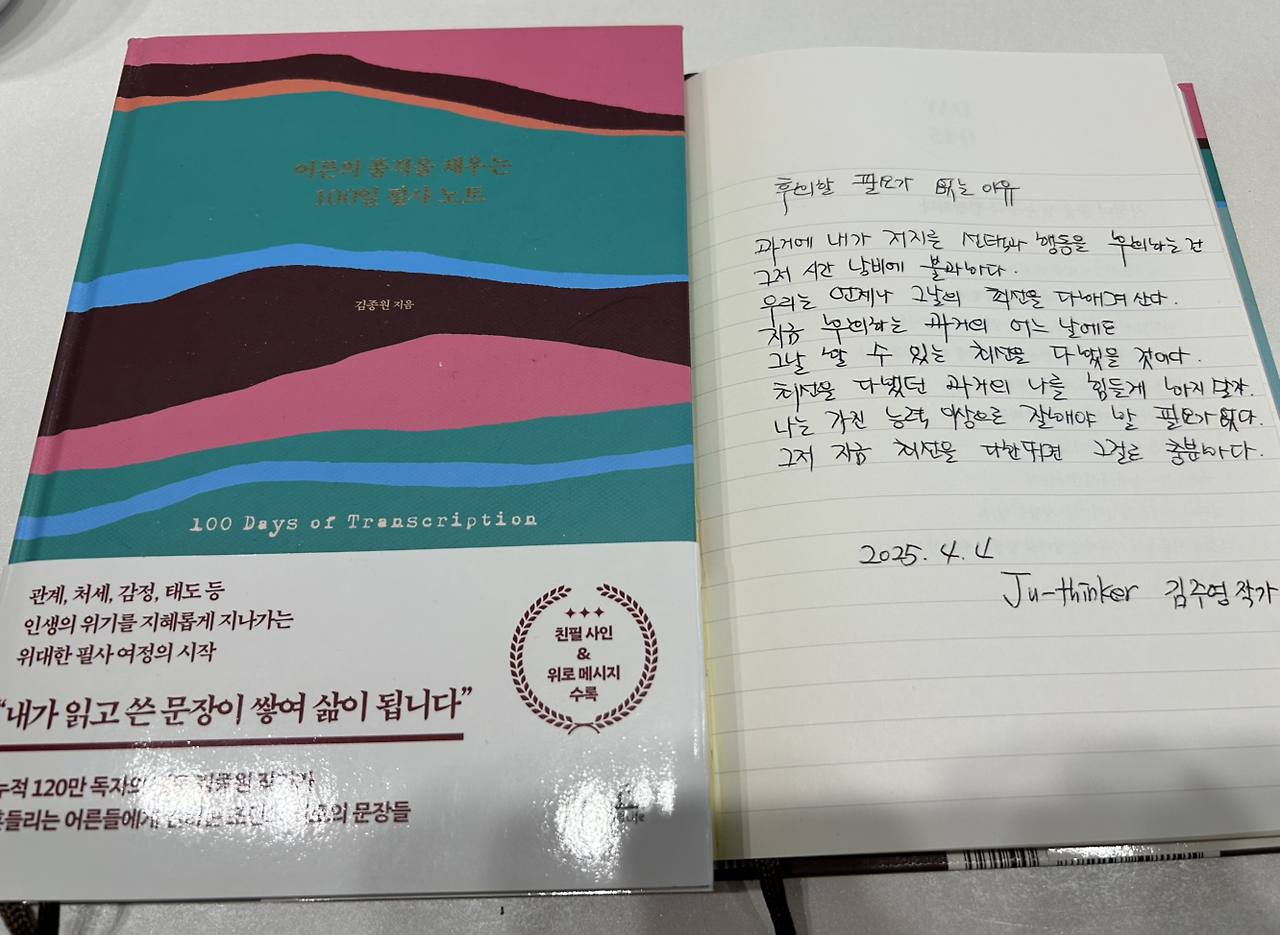 어른의 품격을 채우는
100일 필사 노트
김종원 지음
100 Days of Transcription
관계, 처세, 감정, 태도 등
인생의 위기를 지혜롭게 지나가는
위대한 필사 여정의 시작
“내가 읽고 쓴 문장이 쌓여 삶이 됩니다”
친필 사인
&
위로 메시지
수록
누적 120만 독자의 김종원 작가가
흔들리는 어른들에게 문장들
DAY
045
후회할 필요가 없는 이유
과거에 내가 저지른 선택과 행동을 후회하는 건
그저 시간 낭비에 불과하다.
우리는 언제나 그날의 최선을 다하며 산다.
지금 후회하는 과거의 어느 날에도
그날 할 수 있는 최선을 다했을 것이다.
최선을 다했던 과거의 나를 힘들게 하지 말자.
나는 가진 능력 이상으로 잘해야 할 필요가 없다.
그저 지금 최선을 다한다면 그걸로 충분하다.
2025. 4. 4
Ju-thinker 김주영 작가